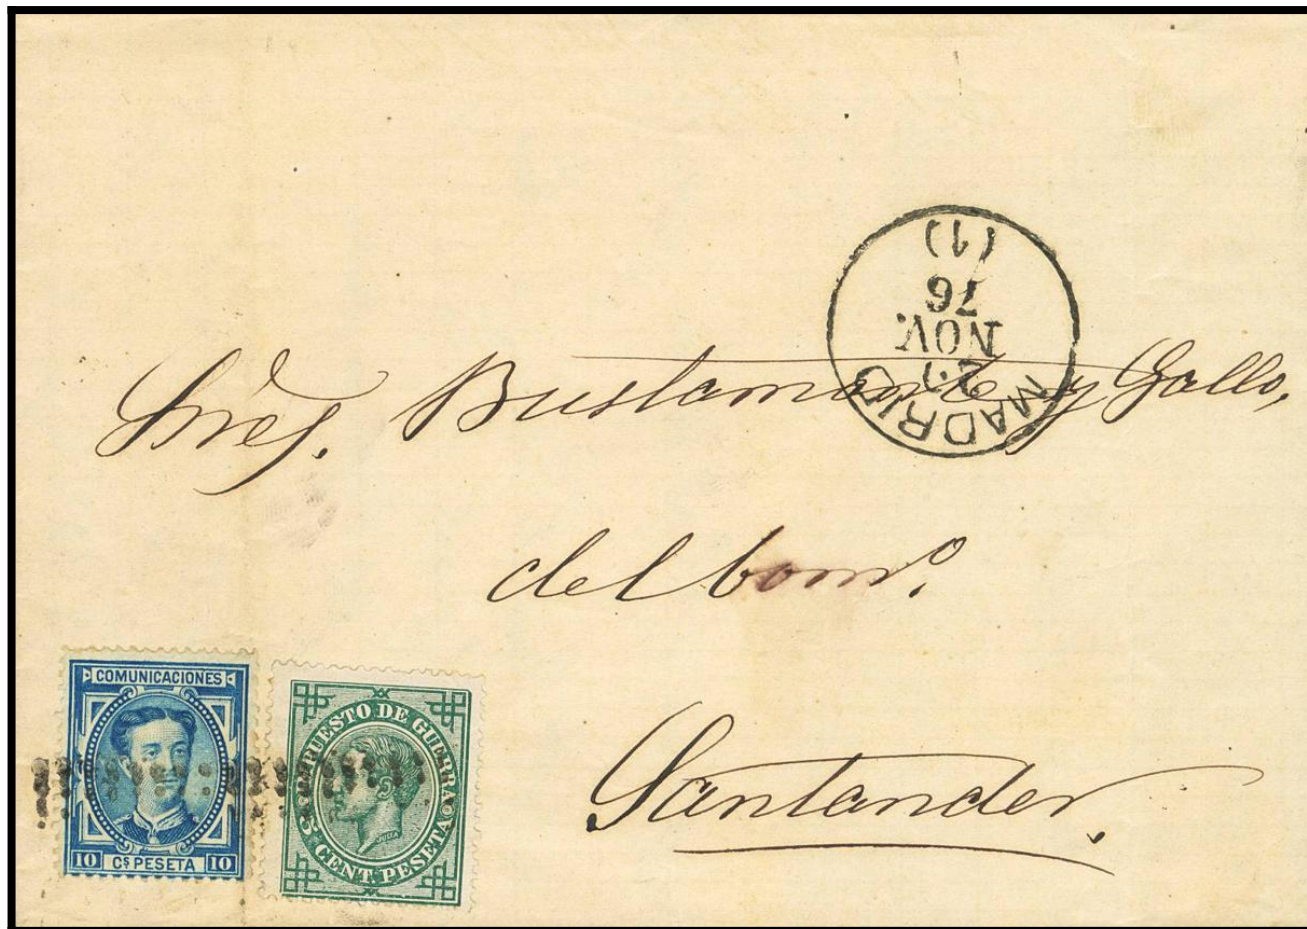 (1)
76
NOV.
MADRID
Sres. Bustamante y Gallo,
del Comº.
Santander.
COMUNICACIONES
10 Cs PESETA 10
IMPUESTO DE GUERRA
5 CENT. PESETA